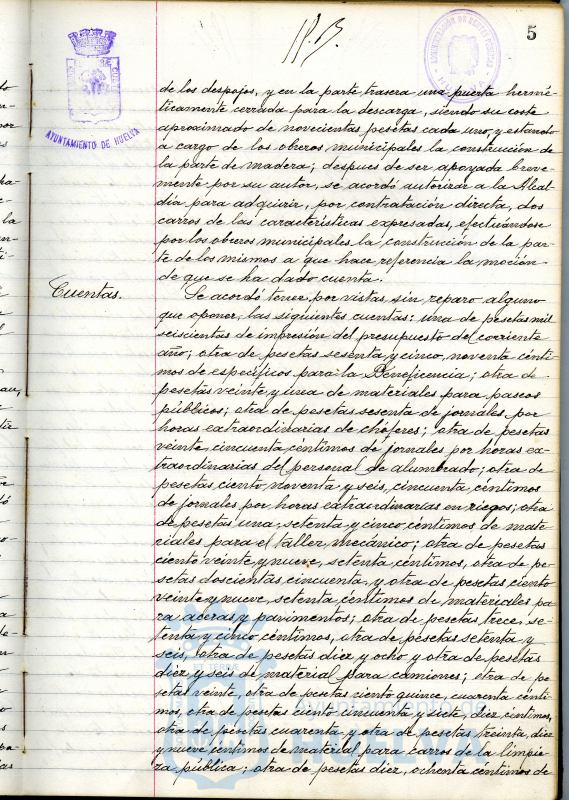 5
AYUNTAMIENTO DE HUELVA
de los despojos, y en la parte trasera una puerta hermé
ticamente cerrada para la descarga, siendo su coste
aproximado de novecientas pesetas cada uno, y estando
a cargo de los obreros municipales la construcción de
la parte de madera; despues de ser apoyada breve-
mente por su autor, se acordó autorizar a la Alcal
día para adquirir, por contratación directa, dos
carros de las características expresadas, efectuándose
por los obreros municipales la construcción de la par-
te de los mismos a que hace referencia la moción
de que se ha dado cuenta.
Cuentas.
Se acordó tener por vistas sin reparo alguno
que oponer, las siguientes cuentas: una de pesetas mil
seiscientas de impresión del presupuesto del corriente
año; otra de pesetas sesenta y cinco, noventa cénti
mos de específicos para la Beneficencia; otra de
pesetas veinte y una de materiales para paseos
públicos; otra de pesetas sesenta de jornales por
horas extraordinarias de chóferes; otra de pesetas
veinte, cincuenta céntimos de jornales por horas ex-
traordinarias del personal de alumbrado; otra de
pesetas ciento noventa y seis, cincuenta céntimos
de jornales por horas extraordinarias en riegos; otra
de pesetas una, setenta y cinco céntimos de mate-
riales para el taller mecánico; otra de pesetas
ciento veinte y nueve, setenta céntimos, otra de pe-
setas doscientas cincuenta, y otra de pesetas ciento
veinte y nueve, setenta céntimos de materiales pa
ra aceras y pavimentos; otra de pesetas trece, se-
tenta y cinco céntimos, otra de pesetas setenta y
seis, otra de pesetas diez y ocho y otra de pesetas
diez y seis de material para camiones; otra de pe
setas veinte, otra de pesetas ciento quince, cuarenta cénti-
mos, otra de pesetas ciento cincuenta y siete, diez céntimos,
otra de pesetas cuarenta y otra de pesetas treinta, diez
y nueve céntimos de material para carros de la limpie-
za pública; otra de pesetas diez, ochenta céntimos de
Ayuntamiento de